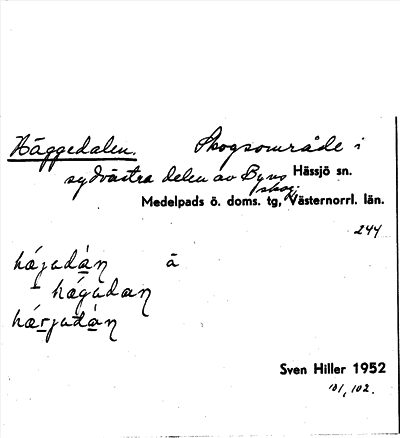 Häggedalen. Skogsområde i
sydvästra delen av Byns skog, Hässjö sn.
Medelpads ö. doms. tg, Västernorrl. län.
244
hǽjadàn å
hǽgadan
hǽrjadàn
Sven Hiller 1952
101, 102.